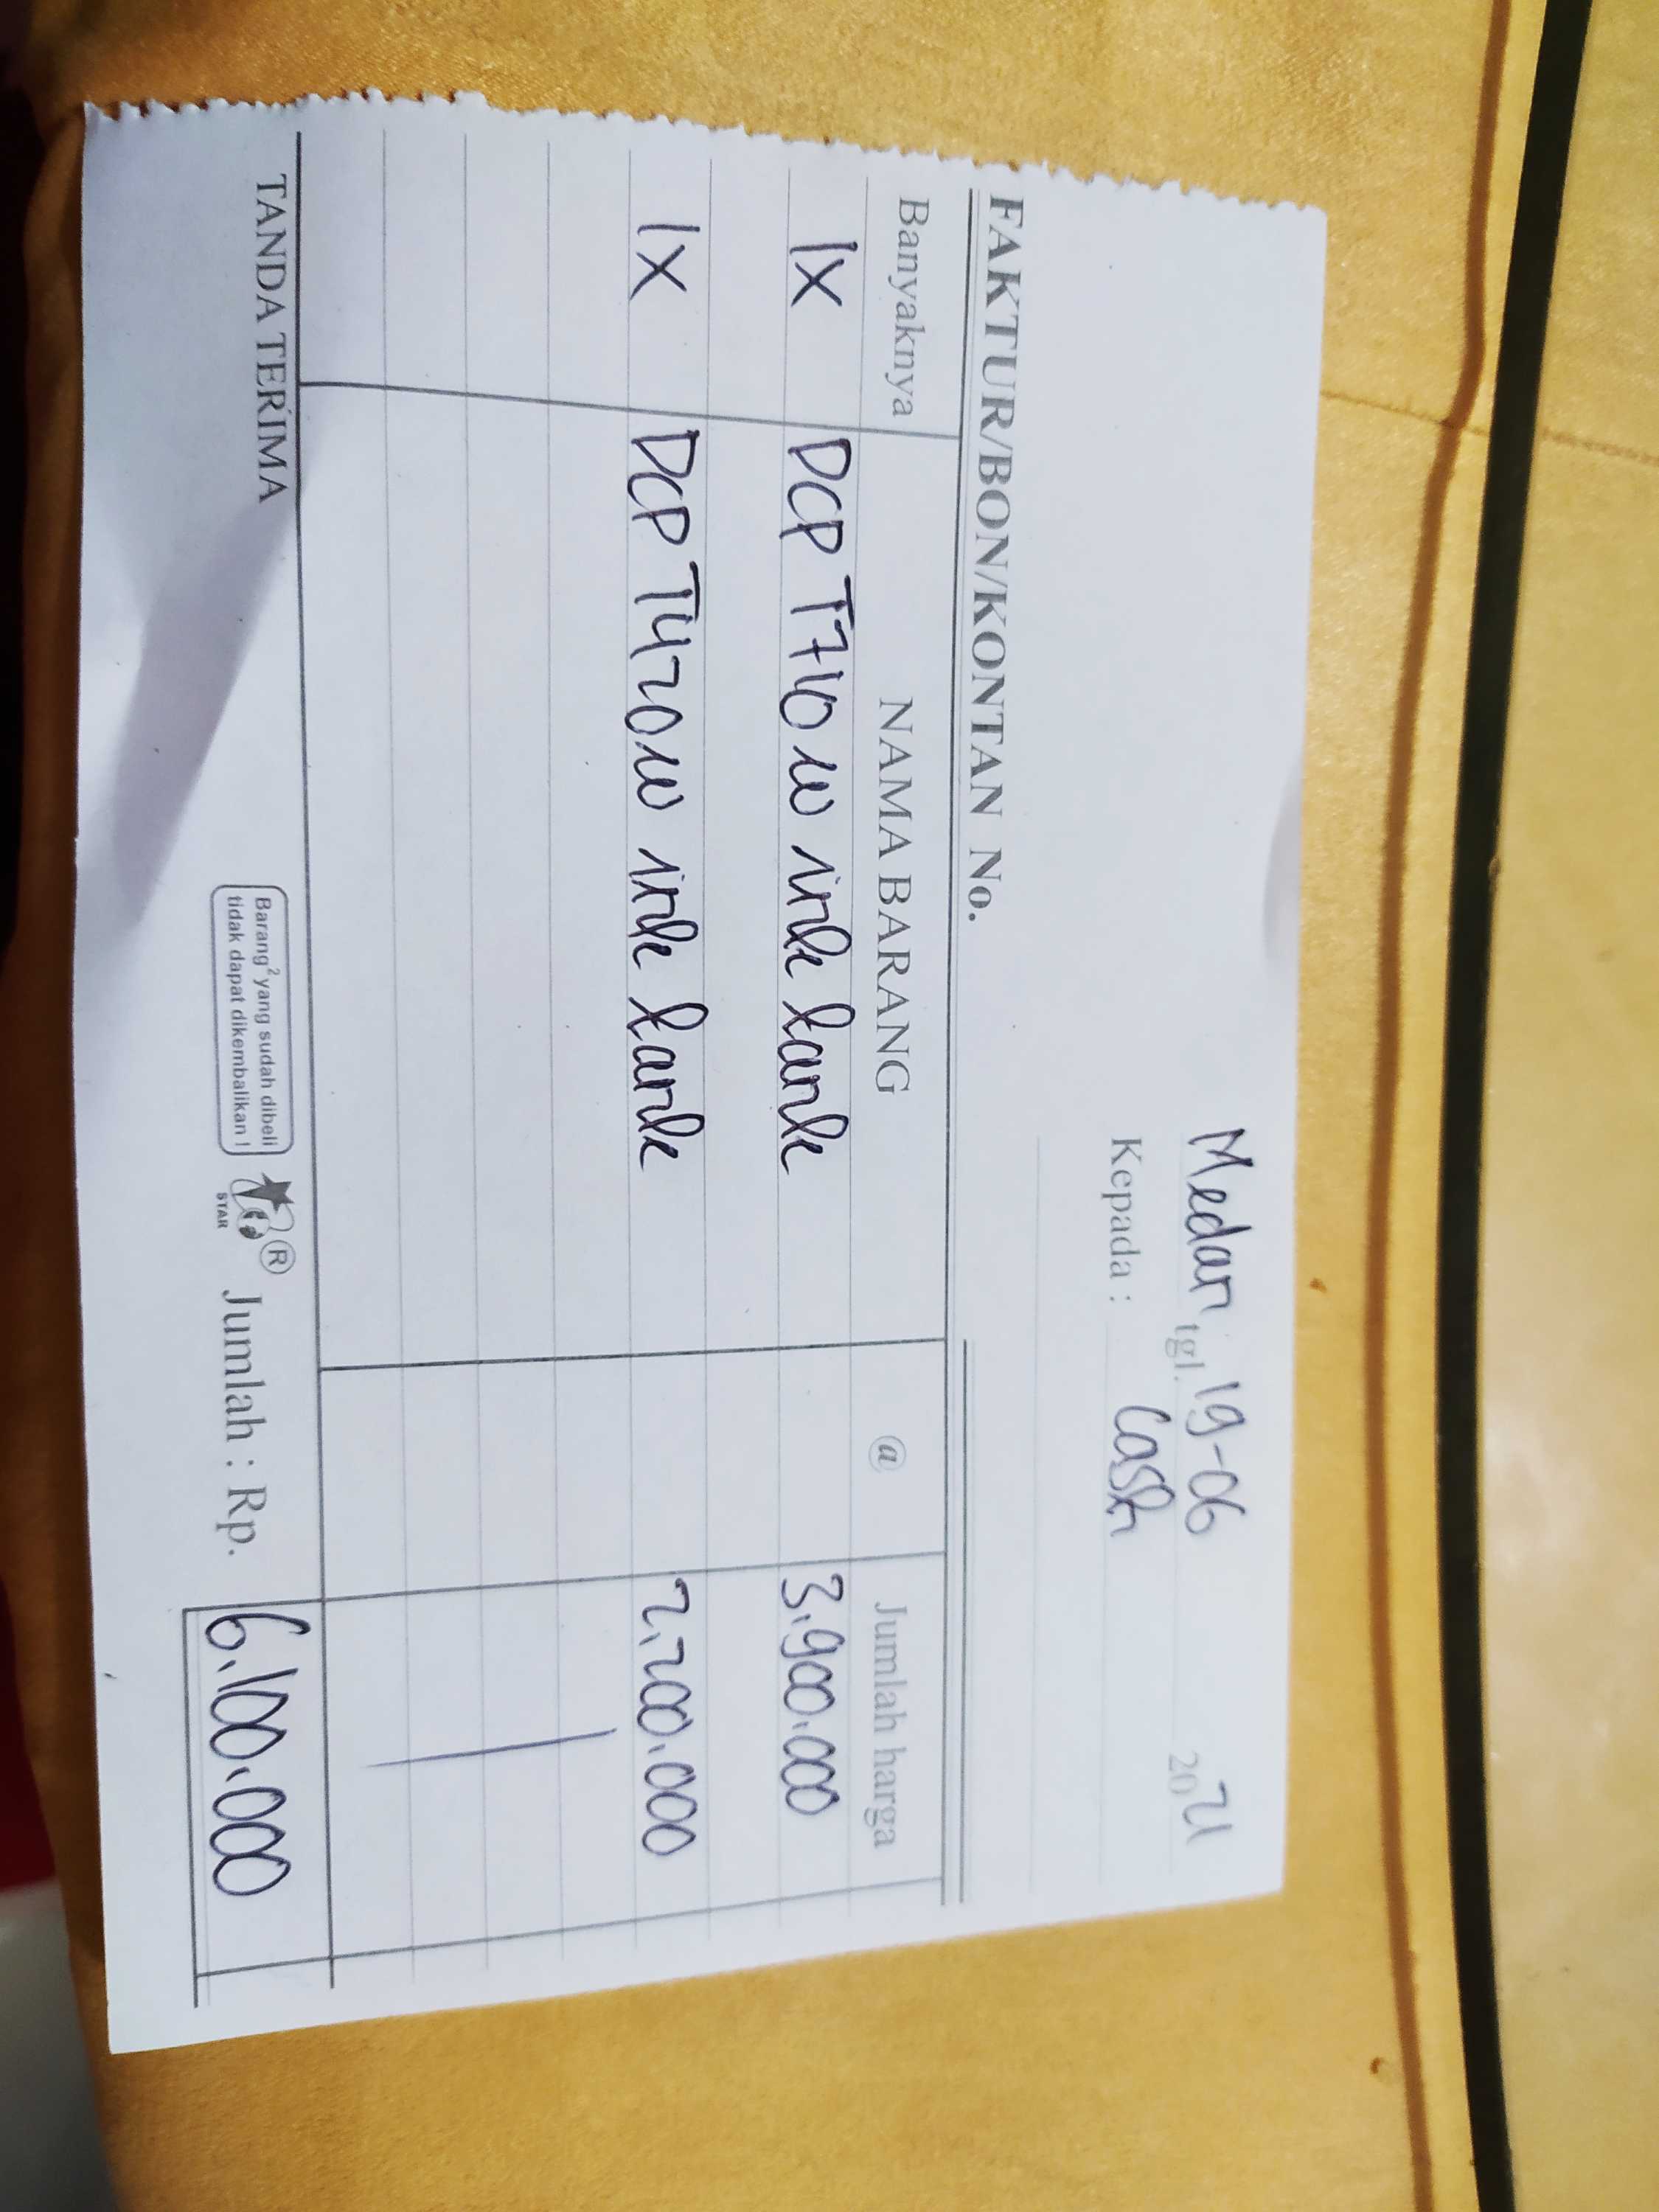 Medan, tgl. 19-06 2021
Kepada : Cash
FAKTUR/BON/KONTAN No.
Banyaknya NAMA BARANG @ Jumlah harga
1x DCP T710w ink tank 3.900.000
1x DCP T420w ink tank 2.200.000
TANDA TERIMA
Barang² yang sudah dibeli
tidak dapat dikembalikan !
®
STAR
Jumlah : Rp. 6.100.000